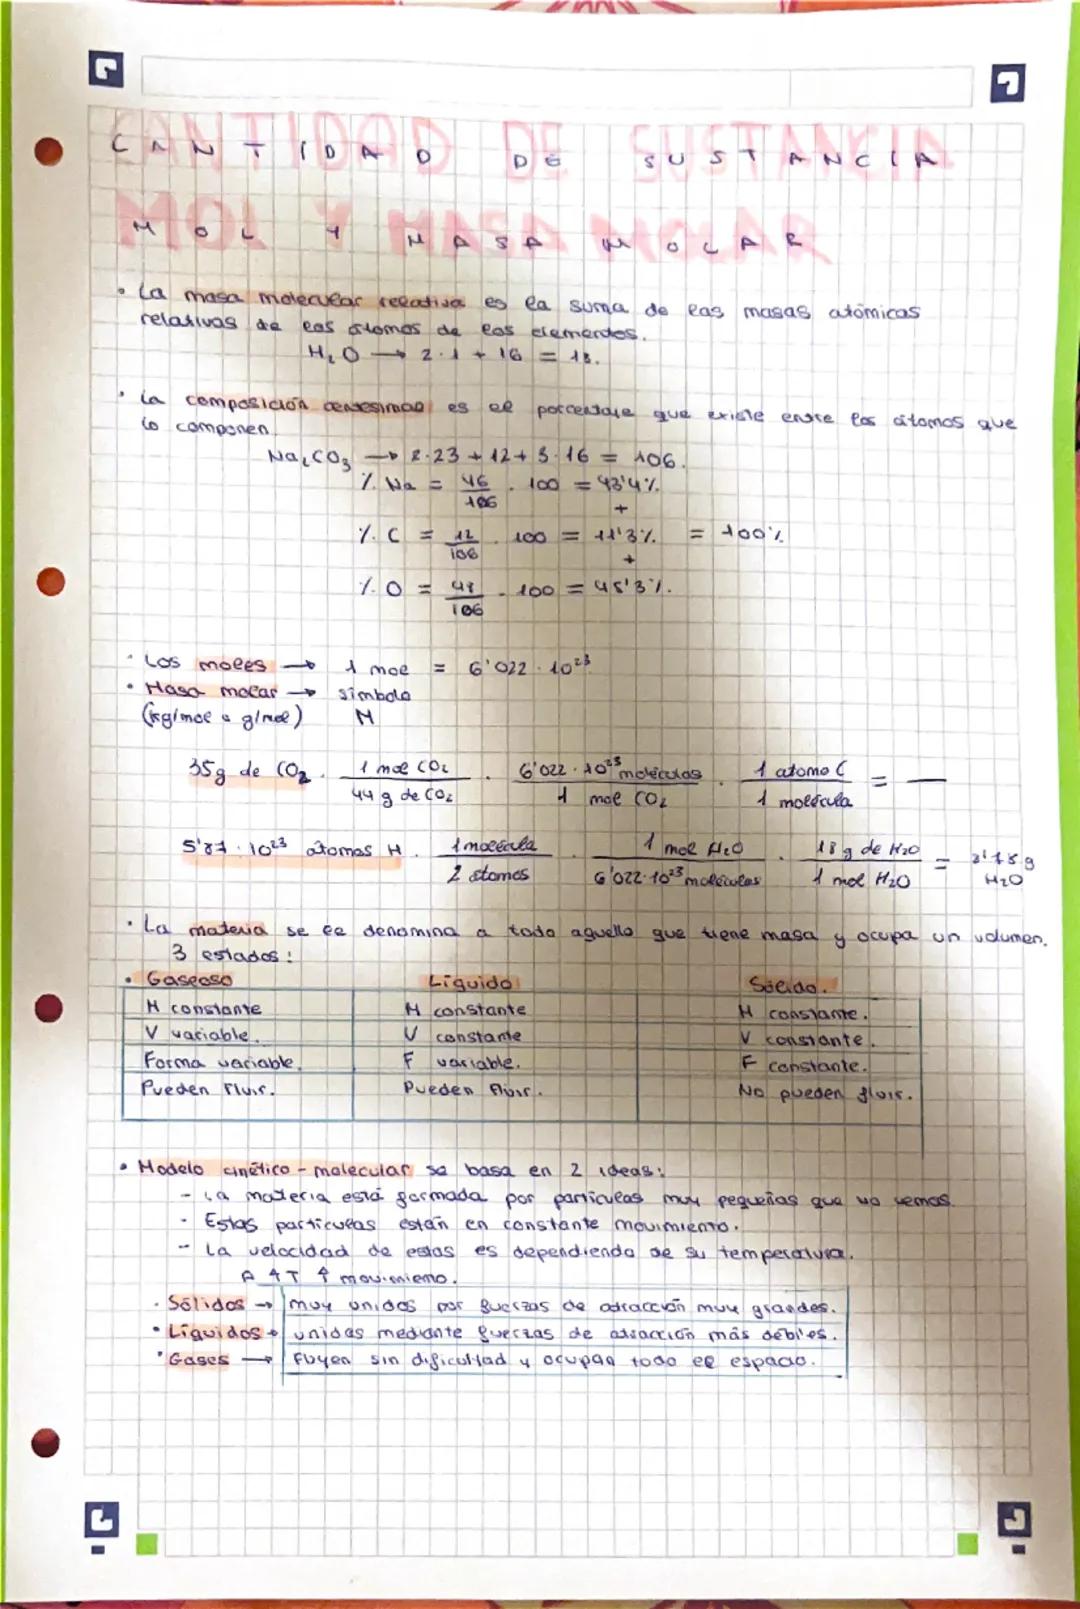 CANTIDAD DE SUSTANCIA
MOL Y MASA MOLAR
• La masa molecular relativa es la suma de las masas atómicas
relativas de los átomos de los elementos.
H₂O → 2·1 + 16 = 18.
• La composición centesimal es el porcentaje que existe entre los átomos que
lo componen.
Na₂CO₃ → 2·23 + 12 + 3·16 = 106.
% Na = 46/106 · 100 = 43'4%.
+
% C = 12/106 · 100 = 11'3% = 100%
+
% O = 48/106 · 100 = 45'3%.
• Los moles → 1 mol = 6'022 · 10²³
• Masa molar → símbolo
(kg/mol o g/mol) M
35g de CO₂ · 1 mol CO₂/44 g de CO₂ · 6'022 · 10²³ moléculas/1 mol CO₂ · 1 atomo C/1 molécula = —
10²³ átomos H · 1 molécula/2 átomos · 1 mol H₂O/6'022·10²³ moléculas · 18 g de H₂O/1 mol H₂O = g H₂O
• La materia se le denomina a todo aquello que tiene masa y ocupa un volumen.
3 estados:
• Gaseoso Líquido Sólido.
M constante M constante M constante.
V variable. V constante V constante.
Forma variable. F variable. F constante.
Pueden Fluir. Pueden Fluir. No pueden fluir.
• Modelo cinético - molecular se basa en 2 ideas:
- La materia está formada por partículas muy pequeñas que no vemos.
- Estas partículas están en constante movimiento.
- La velocidad de estas es dependiendo de su temperatura.
A ↑T ↑ movimiento.
• Sólidos → muy unidos por fuerzas de atracción muy grandes.
• Líquidos → unidas mediante fuerzas de atracción más débiles.
• Gases → Fuyen sin dificultad y ocupan todo el espacio.